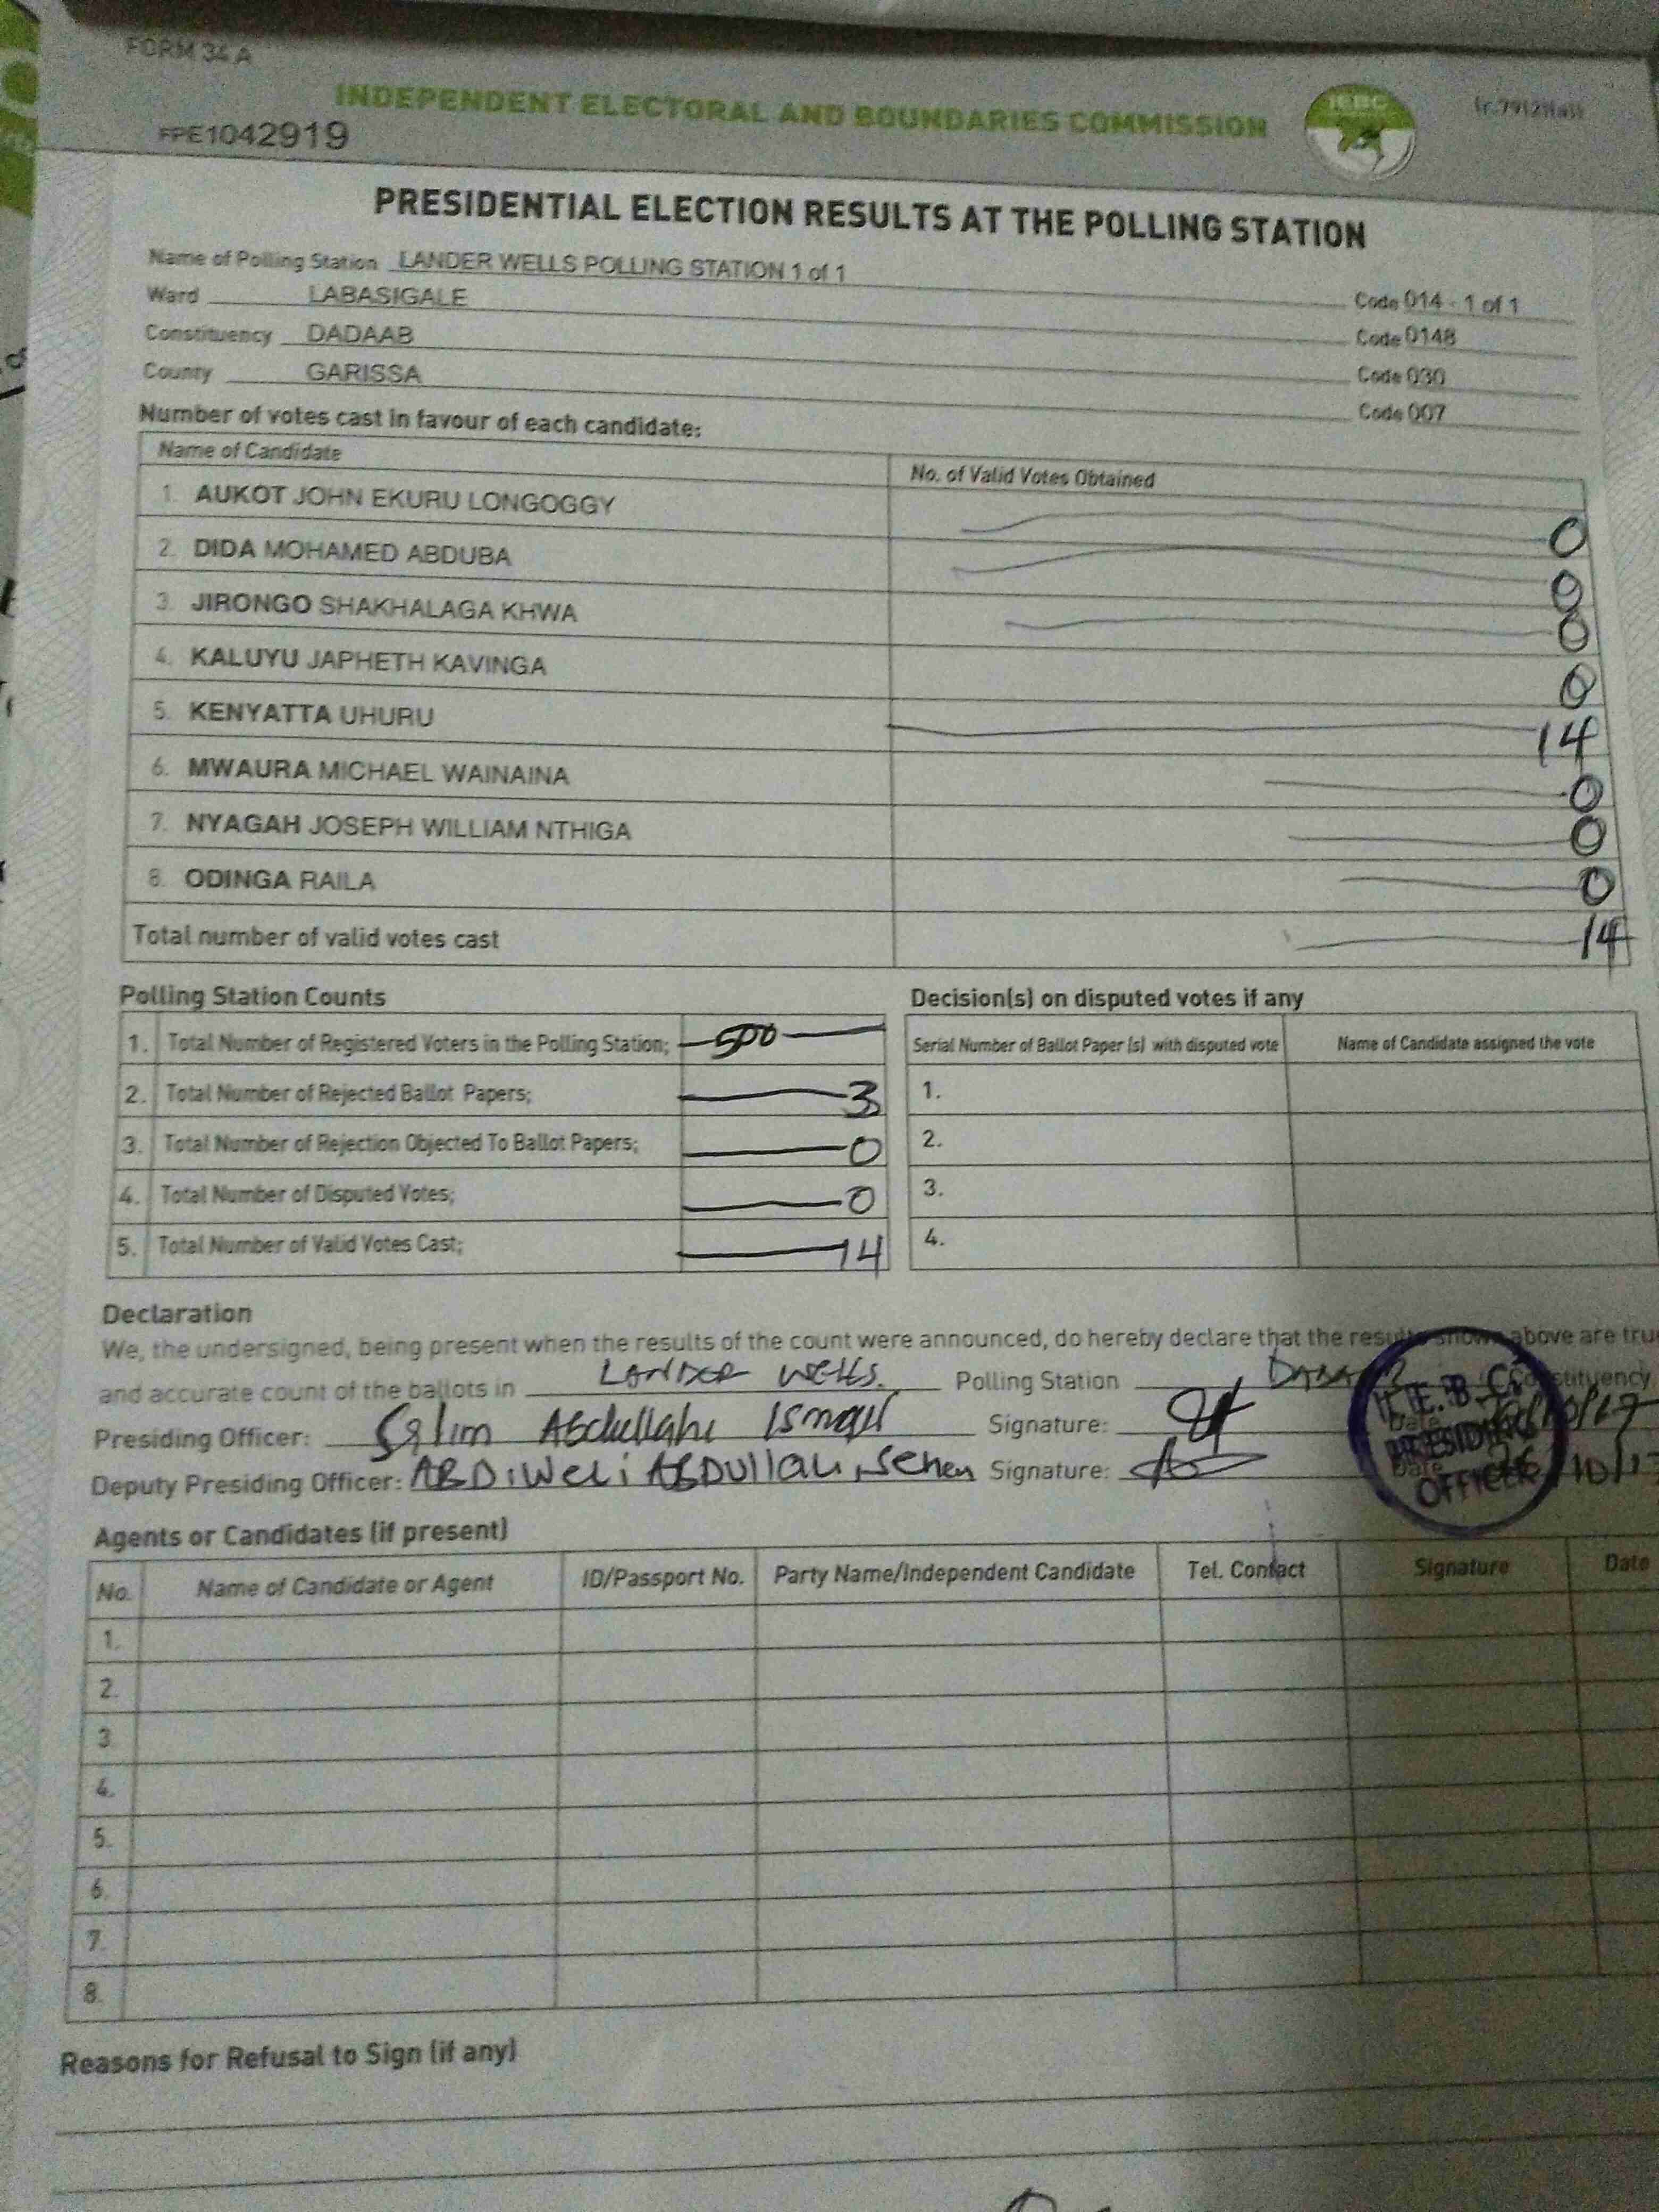 FORM 34 A
INDEPENDENT ELECTORAL AND BOUNDARIES COMMISSION
IEBC
FPE1042919
PRESIDENTIAL ELECTION RESULTS AT THE POLLING STATION
Name of Polling Station LANDER WELLS POLLING STATION 1 of 1
Code 014 - 1 of 1
Ward LABASIGALE
Code 0148
Constituency DADAAB
Code 030
County GARISSA
Code 007
Number of votes cast in favour of each candidate:
Name of Candidate No. of Valid Votes Obtained
1. AUKOT JOHN EKURU LONGOGGY 0
2. DIDA MOHAMED ABDUBA 0
3. JIRONGO SHAKHALAGA KHWA 0
4. KALUYU JAPHETH KAVINGA 0
5. KENYATTA UHURU 14
6. MWAURA MICHAEL WAINAINA 0
7. NYAGAH JOSEPH WILLIAM NTHIGA 0
8. ODINGA RAILA 0
Total number of valid votes cast 14
Polling Station Counts
1. Total Number of Registered Voters in the Polling Station; 500
2. Total Number of Rejected Ballot Papers; 3
3. Total Number of Rejection Objected To Ballot Papers; 0
4. Total Number of Disputed Votes; 0
5. Total Number of Valid Votes Cast; 14
Decision(s) on disputed votes if any
Serial Number of Ballot Paper (s) with disputed vote Name of Candidate assigned the vote
1.
2.
3.
4.
Declaration
We, the undersigned, being present when the results of the count were announced, do hereby declare that the results shown above are true
and accurate count of the ballots in LANDER WELLS. Polling Station Constituency.
Presiding Officer: Salim Abdullahi Ismail Signature: Date
Deputy Presiding Officer: ABDiWeli ABDUllahi Signature: Date
I.E.B.C.
PRESIDING
OFFICER
Agents or Candidates (if present)
No. Name of Candidate or Agent ID/Passport No. Party Name/Independent Candidate Tel. Contact Signature Date
1.
2.
3.
4.
5.
6.
7.
8.
Reasons for Refusal to Sign (if any)